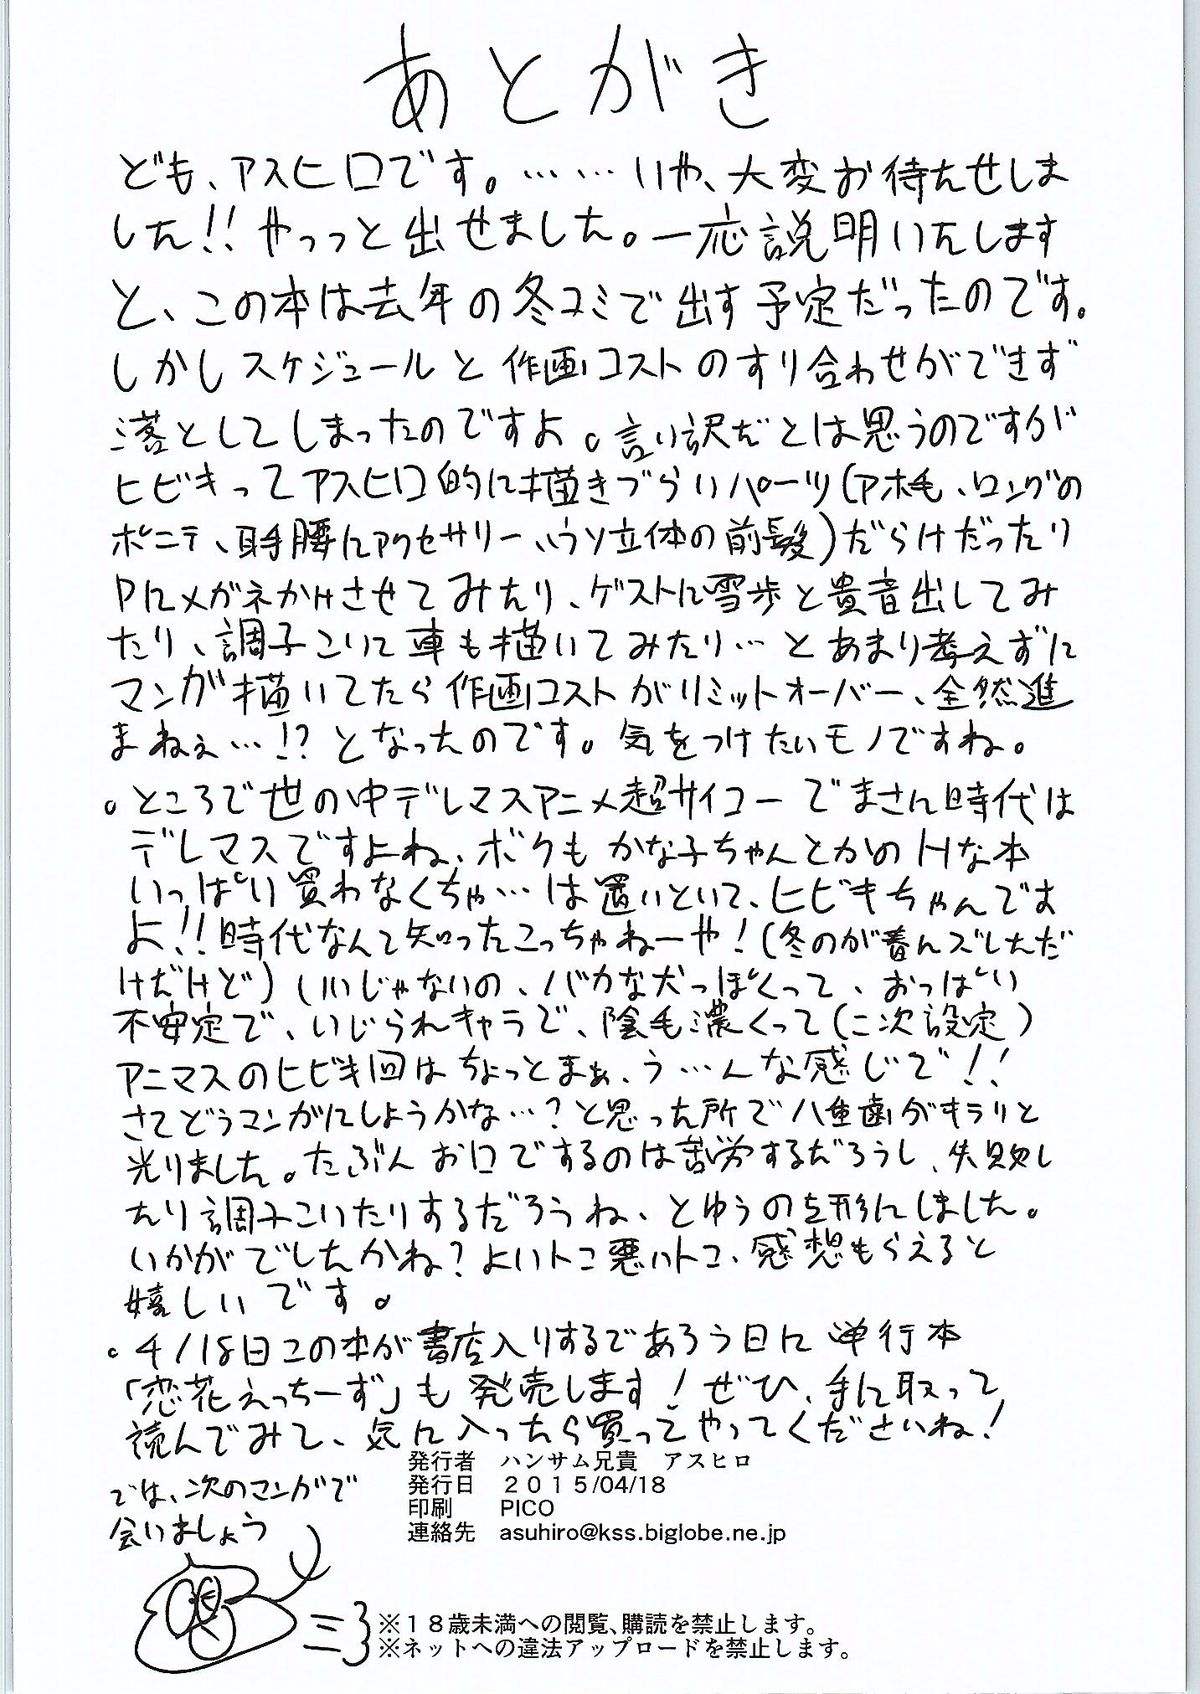 あとがき
ども、アスヒロです。……いや、大変お待たせしま
した!!やっっと出せました。一応説明いたします
と、この本は去年の冬コミで出す予定だったのです。
しかしスケジュールと作画コストのすり合わせができず
落としてしまったのですよ。言い訳だとは思うのですが
ヒビキってアスヒロ的に描きづらいパーツ(アホ毛、ロングの
ポニテ、耳手腰にアクセサリー、ウソ立体の前髪)だらけだったり
Pにメガネかけさせてみたり、ゲストに雪歩と貴音出してみ
たり、調子こいて車も描いてみたり…とあまり考えずに
マンガ描いてたら作画コストがリミットオーバー、全然進
まねぇ…!?となったのです。気をつけたいモノですね。
。ところで世の中デレマスアニメ超サイコーでまさに時代は
デレマスですよね、ボクもかな子ちゃんとかのHな本
いっぱい買わなくちゃ…は置いといて、ヒビキちゃんです
よ!!時代なんて知ったこっちゃねーや!(冬のが春んズレただ
けだけど)いいじゃないの、バカな犬っぽくって、おっぱい
不安定で、いじられキャラで、陰毛濃くって(二次設定)
アニマスのヒビキ回はちょっとまぁ、う…んな感じで!!
さてどうマンガにしようかな…?と思った所で八重歯がキラリと
光りました。たぶんお口でするのは苦労するだろうし、失敗し
たり調子こいたりするだろうね、とゆうのを形にしました。
いかがでしたかね?よいトコ悪いトコ、感想もらえると
嬉しいです。
。4/18日この本が書店入りするであろう日に単行本
「恋花えっちーず」も発売します!ぜひ、手に取って
読んでみて、気に入ったら買ってやってくださいね!
では、次のマンガで
会いましょう
発行者 ハンサム兄貴 アスヒロ
発行日 2015/04/18
印刷 PICO
連絡先 asuhiro@kss.biglobe.ne.jp
※18歳未満への閲覧、購読を禁止します。
※ネットへの違法アップロードを禁止します。